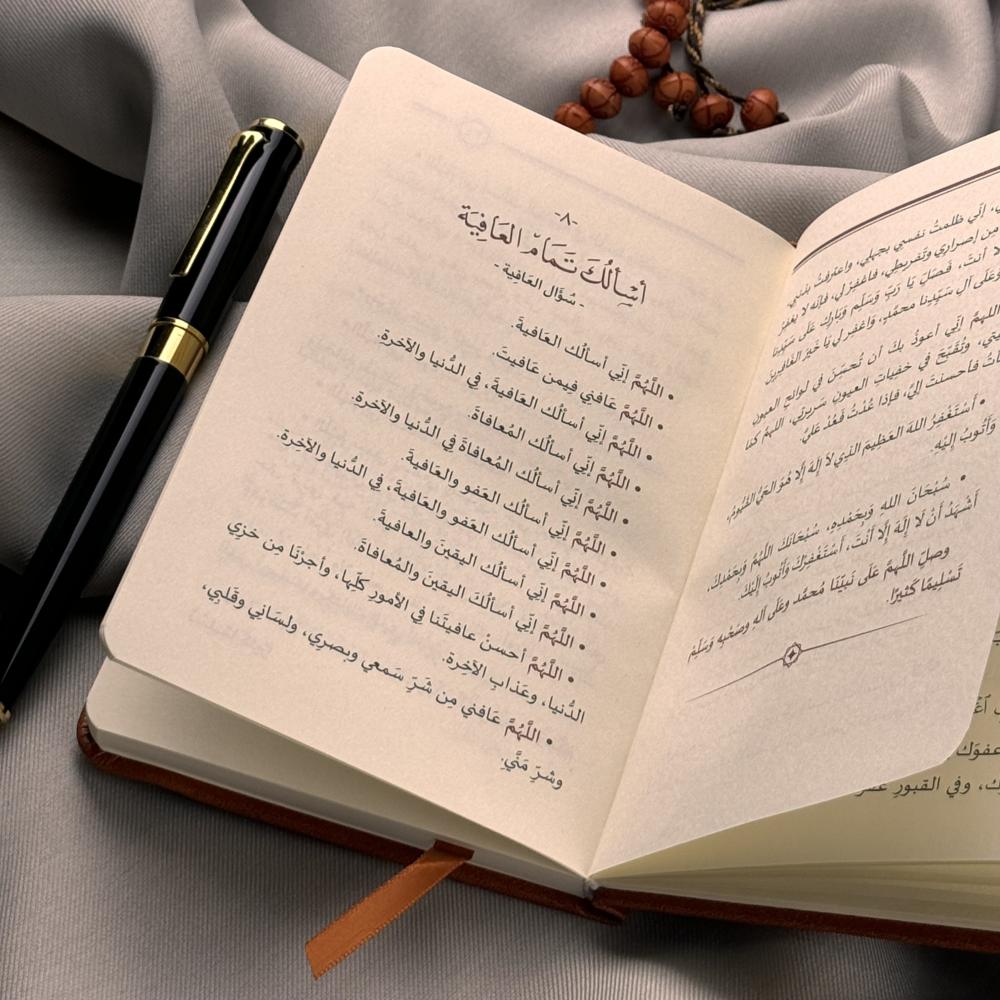 -٨-
أسْألُكَ تَمَامَ العَافِيَة
- سُؤَال العَافية -
• اللَّهُمَّ إنّي أسألُك العَافيةَ.
• اللَّهُمَّ عَافني فِيمن عَافيتَ.
• اللَّهُمَّ إنّي أسألُك العَافيةَ، في الدُّنيا والآخرةِ.
• اللَّهُمَّ إنّي أسألُك المُعافاةَ.
• اللَّهُمَّ إنّي أسألُك المُعافاةَ في الدُّنيا والآخرةِ.
• اللَّهُمَّ إنّي أسألُك العَفو والعَافيةَ.
• اللَّهُمَّ إنّي أسألُك العَفو والعَافيةَ، في الدُّنيا والآخرةِ.
• اللَّهُمَّ إنّي أسألُك اليقينَ والعَافيةَ.
• اللَّهُمَّ إنّي أسألُكَ اليقينَ والمُعافاةَ.
• اللَّهُمَّ أحسنْ عافيتَنا في الأمورِ كلِّها، وأجرْنَا مِن خزي
الدُّنيا، وعَذابِ الآخِرة.
• اللَّهُمَّ عَافني مِن شَرّ سَمعي وبصري، ولسَاني وقَلبي،
وشرّ مَنّي.
إنّي ظلمتُ نفسي بجهلي، واعترفتُ بذنبي،
مِن إصراري وتَفريطي، فاغفرْ لي، فإنّه لا يغفرُ
أنتَ، فَصَلّ يَا رَبّ وَسَلّم وَبَارك عَلَى سَيّدِنا
وَعَلَى آلِ سَيّدِنا محمّدٍ، وَاغفر لي يَا خَيرَ الغَافِرِينَ
اللهمَّ إنّي أعوذُ بكَ أن تُحسّنَ في لوائحِ العيونِ
وتُقَبّحَ في خفياتِ العيونِ سَريرَتي، اللهمَّ كمَا
فأحسنتَ إليَّ، فإذا عُدْتُ فَعُدْ عَليَّ.
• أَسْتَغْفِرُ اللهَ العَظيمَ الذي لَا إلَهَ إلَّا هُوَ الحَيُّ القَيُّومُ،
وَأَتُوبُ إلَيْهِ.
• سُبْحَانَ اللهِ وَبِحَمْدِهِ، سُبْحَانَكَ اللَّهُمَّ وَبِحَمْدِكَ،
أَشْهَدُ أنْ لَا إلَهَ إلَّا أنْتَ، أسْتَغْفِرُكَ وَأَتُوبُ إلَيْكَ.
وصلّ اللَّهُمَّ عَلَى نَبيّنَا مُحمّد وعَلَى آلهِ وصَحْبِهِ وَسَلِّمْ
تَسْلِيمًا كَثيرًا.
عفوَك
وفي القبورِ